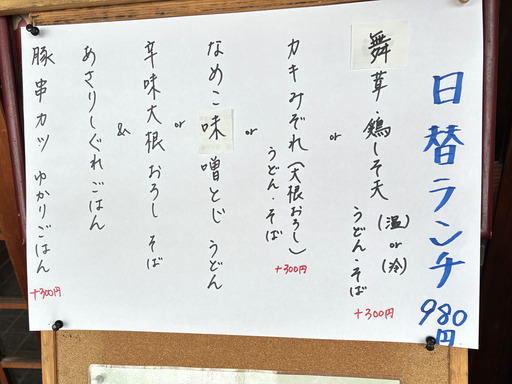 日替ランチ 980円
舞茸・鶏しそ天 (温)or(冷) うどん・そば +300円
or
カキみぞれ(大根おろし) うどん・そば +300円
or
なめこ味噌とじ うどん
or
辛味大根おろし そば
&
あさりしぐれごはん
豚串カツ ゆかりごはん +300円